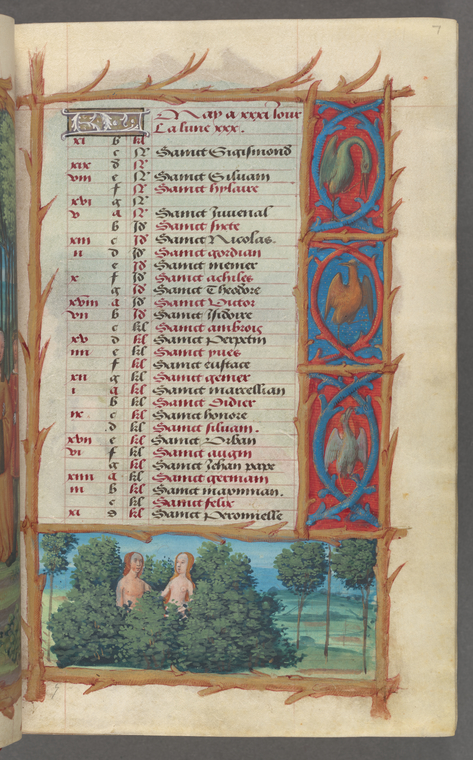 7
May a xxxi Jour
La lune xxx.
xi b kl
c N Sainct Sigismond
xix d N
viii e N Sainct Siluain
f N Sainct hylaire
xvi g N
v a N Sainct Juuenal
b Jd Sainct sixte
xiii c Jd Sainct Nicolas.
ii d Jd Sainct gordian
e Jd Sainct
x f Jd Sainct achiles
g Jd Sainct Theodore
xviii a Jd Sainct Victor
vii b Jd Sainct Jsidoire
c kl Sainct ambrois
xv d kl Sainct Perpetin
iiii e kl Sainct yues
f kl Sainct eustace
xii g kl Sainct
i a kl Sainct marcellian
b kl Sainct Didier
ix c kl Sainct honore
d kl Sainct siluain.
xvii e kl Sainct Urban
vi f kl Sainct
g kl Sainct Jehan pape
xiiii a kl Sainct germain
iii b kl Sainct maximian.
c kl Sainct felix
xi d kl Sainct Peronnelle